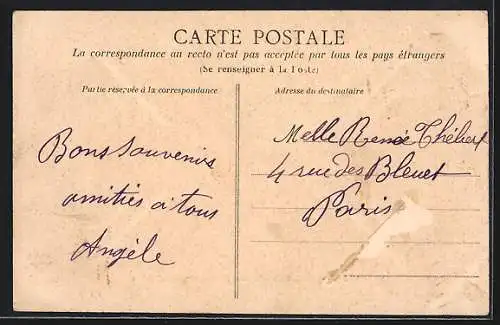 CARTE POSTALE
La correspondance au recto n'est pas acceptée par tous les pays étrangers
(Se renseigner à la Poste)
Partie réservée à la correspondance
Adresse du destinataire
Bons souvenirs
amitiés à tous
Angèle
Melle Renée
4 rue des Bleuet
Paris